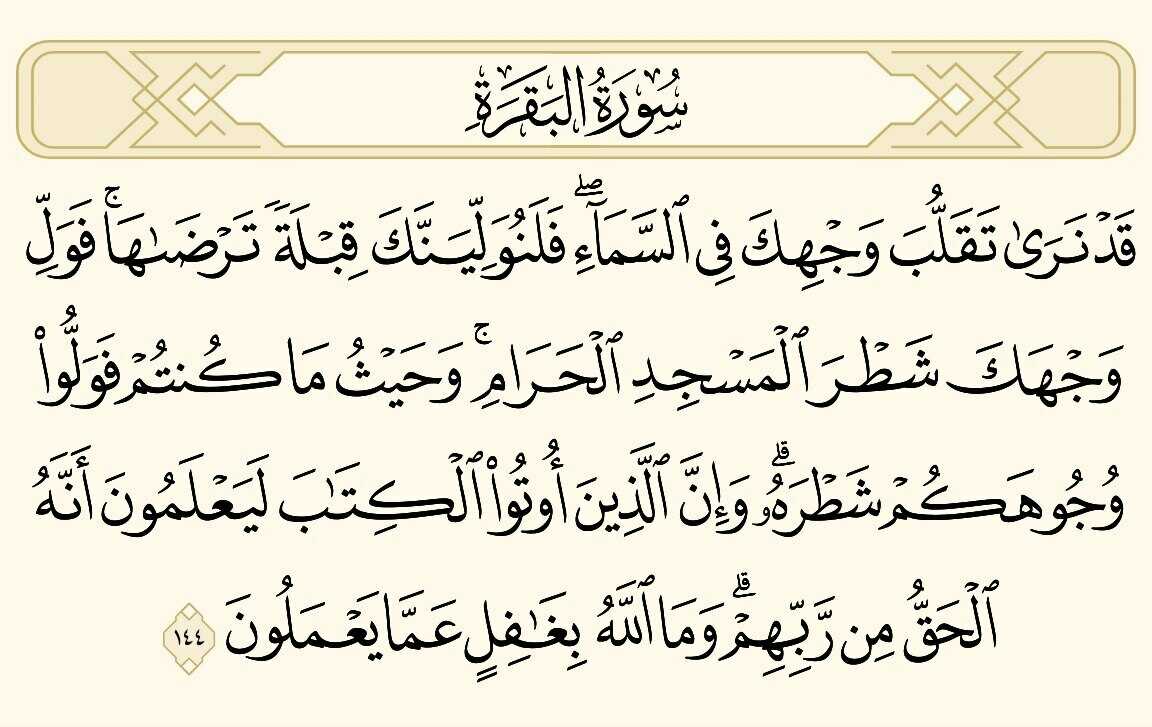 سُورَةُ البَقَرَةِ
قَدۡ نَرَىٰ تَقَلُّبَ وَجۡهِكَ فِي ٱلسَّمَآءِۖ فَلَنُوَلِّيَنَّكَ قِبۡلَةٗ تَرۡضَىٰهَاۚ فَوَلِّ
وَجۡهَكَ شَطۡرَ ٱلۡمَسۡجِدِ ٱلۡحَرَامِۚ وَحَيۡثُ مَا كُنتُمۡ فَوَلُّواْ
وُجُوهَكُمۡ شَطۡرَهُۥۗ وَإِنَّ ٱلَّذِينَ أُوتُواْ ٱلۡكِتَٰبَ لَيَعۡلَمُونَ أَنَّهُ
ٱلۡحَقُّ مِن رَّبِّهِمۡۗ وَمَا ٱللَّهُ بِغَٰفِلٍ عَمَّا يَعۡمَلُونَ ١٤٤